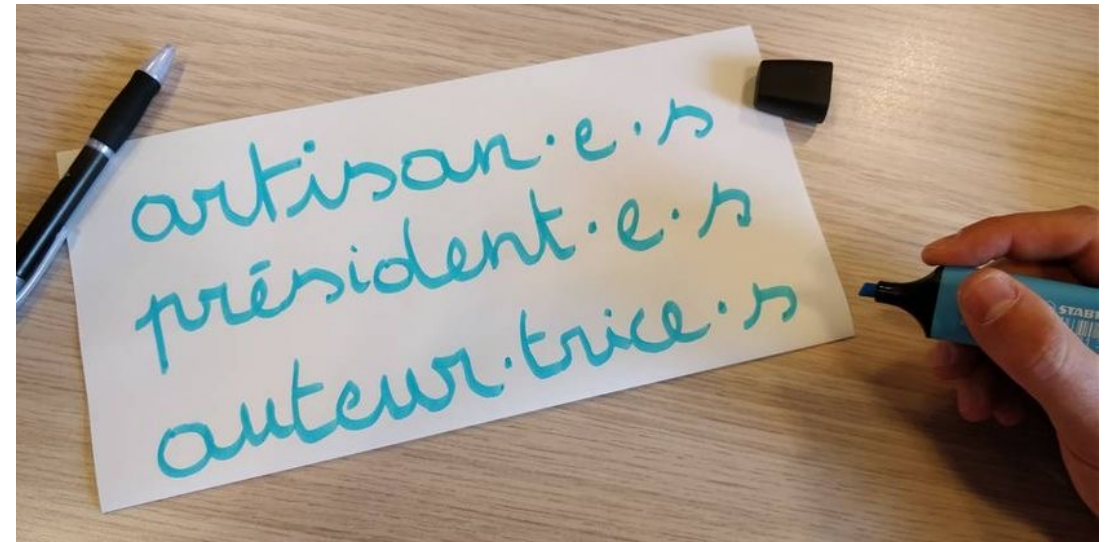 artisan·e·s
président·e·s
auteur·trice·s
STAB